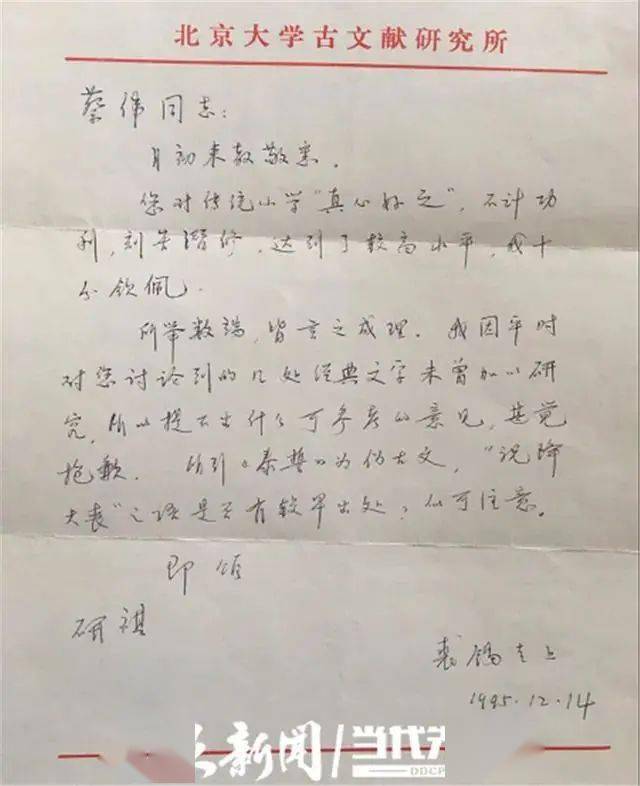 北京大学古文献研究所
蔡伟同志：
月初来教敬悉。
您对传统小学“真心好之”，不计功
利，刻苦潜修，达到了较高水平，我十
分钦佩。
所举数端，皆言之成理。我因平时
对您讨论到的几处经典文字未曾加以研
究，所以提不出什么可参考的意见，甚觉
抱歉。所引《泰誓》为伪古文，“祝降
大丧”之语是否有较早出处，似可注意。
即颂
研祺
裘锡圭上
1995.12.14
新闻/当代
DDCP